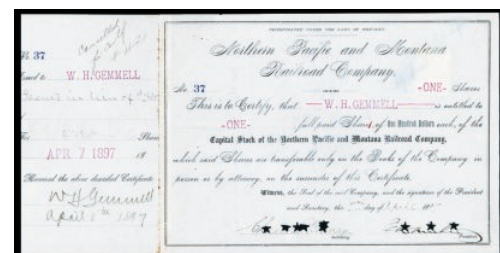 No. 37
Cancelled
Issued to W. H. GEMMELL
For Shares
APR 7 1897 19
Received the above described Certificate
W H Gemmell
April 8th 1897
INCORPORATED UNDER THE LAWS OF MONTANA
Northern Pacific and Montana
Railroad Company.
No 37 -ONE- Shares
This is to Certify, that W. H. GEMMELL is entitled to
-ONE- full paid Shares, of One Hundred Dollars each, of the
Capital Stock of the Northern Pacific and Montana Railroad Company,
which said Shares are transferable only on the Books of the Company in
person or by attorney, on the surrender of this Certificate.
Witness, the Seal of the said Company, and the signatures of the President
and Secretary, this day of April
Secretary President